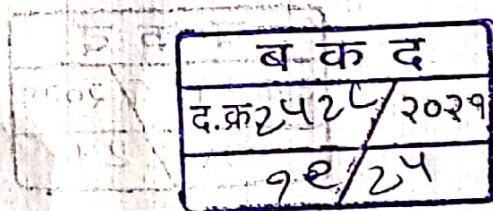 ब क द
द.क्र २५२८/२०२१
१९/२५